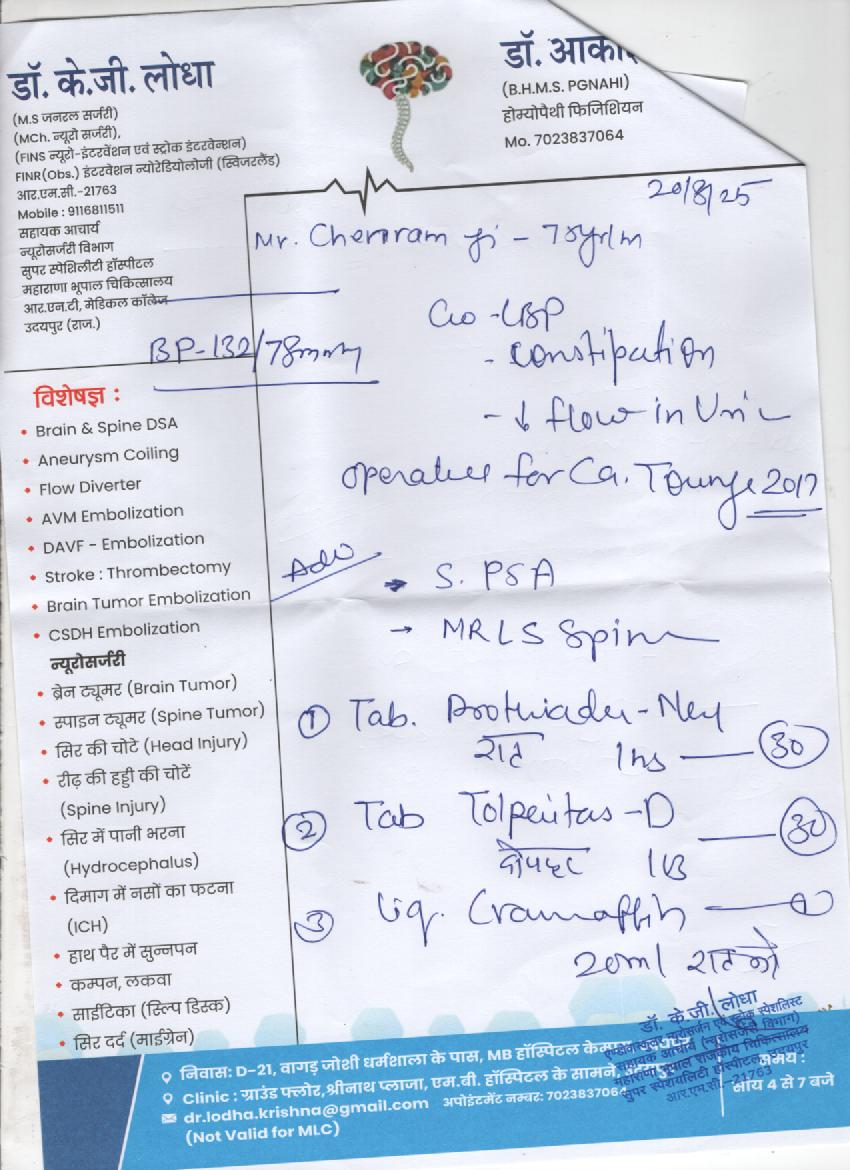 डॉ. के.जी. लोधा
(M.S जनरल सर्जरी)
(MCh. न्यूरो सर्जरी),
(FINS न्यूरो-इंटरवेंशन एवं स्ट्रोक इंटरवेन्शन)
FINR(Obs.) इंटरवेंशन न्योरेडियोलोजी (स्विजरलैंड)
आर.एम.सी.-21763
Mobile : 9116811511
सहायक आचार्य
न्यूरोसर्जरी विभाग
सुपर स्पेशिलीटी हॉस्पीटल
महाराणा भूपाल चिकित्सालय
आर.एन.टी, मेडिकल कॉलेज
उदयपुर (राज.)
डॉ. आका
(B.H.M.S. PGNAHI)
होम्योपैथी फिजिशियन
Mo. 7023837064
20/8/25
Mr. Chenram ji -
BP-132/78mmHg
C/o - LBP
- Constipation
- ↓ flow in Urine
operated for Ca. Tounge 2017
Adv
→ S. PSA
→ MR LS Spine
① Tab. Prothiaden-Ney
रात 1hs — 30
② Tab Tolperitas-D
दोपहर — 30
③ Liq. Cremaffin — 1
20ml रात को
विशेषज्ञ :
• Brain & Spine DSA
• Aneurysm Coiling
• Flow Diverter
• AVM Embolization
• DAVF - Embolization
• Stroke : Thrombectomy
• Brain Tumor Embolization
• CSDH Embolization
न्यूरोसर्जरी
• ब्रेन ट्यूमर (Brain Tumor)
• स्पाइन ट्यूमर (Spine Tumor)
• सिर की चोटे (Head Injury)
• रीढ़ की हड्डी की चोटें
(Spine Injury)
• सिर में पानी भरना
(Hydrocephalus)
• दिमाग में नसों का फटना
(ICH)
• हाथ पैर में सुन्नपन
• कम्पन, लकवा
• साईटिका (स्लिप डिस्क)
• सिर दर्द (माईग्रेन)
डॉ. के.जी. लोधा
सहायक आचार्य (न्यूरोसर्जरी विभाग)
महाराणा भूपाल राजकीय चिकित्सालय
सुपर स्पेशयलिटी हॉस्पीटल, उदयपुर
आर.एम.सी.-21763
निवास: D-21, वागड़ जोशी धर्मशाला के पास, MB हॉस्पिटल
Clinic : ग्राउंड फ्लोर,श्रीनाथ प्लाजा, एम.बी. हॉस्पिटल के सामने,
dr.lodha.krishna@gmail.com अपोइंटमेंट नम्बर: 7023837064
(Not Valid for MLC)
समय :
सांय 4 से 7 बजे